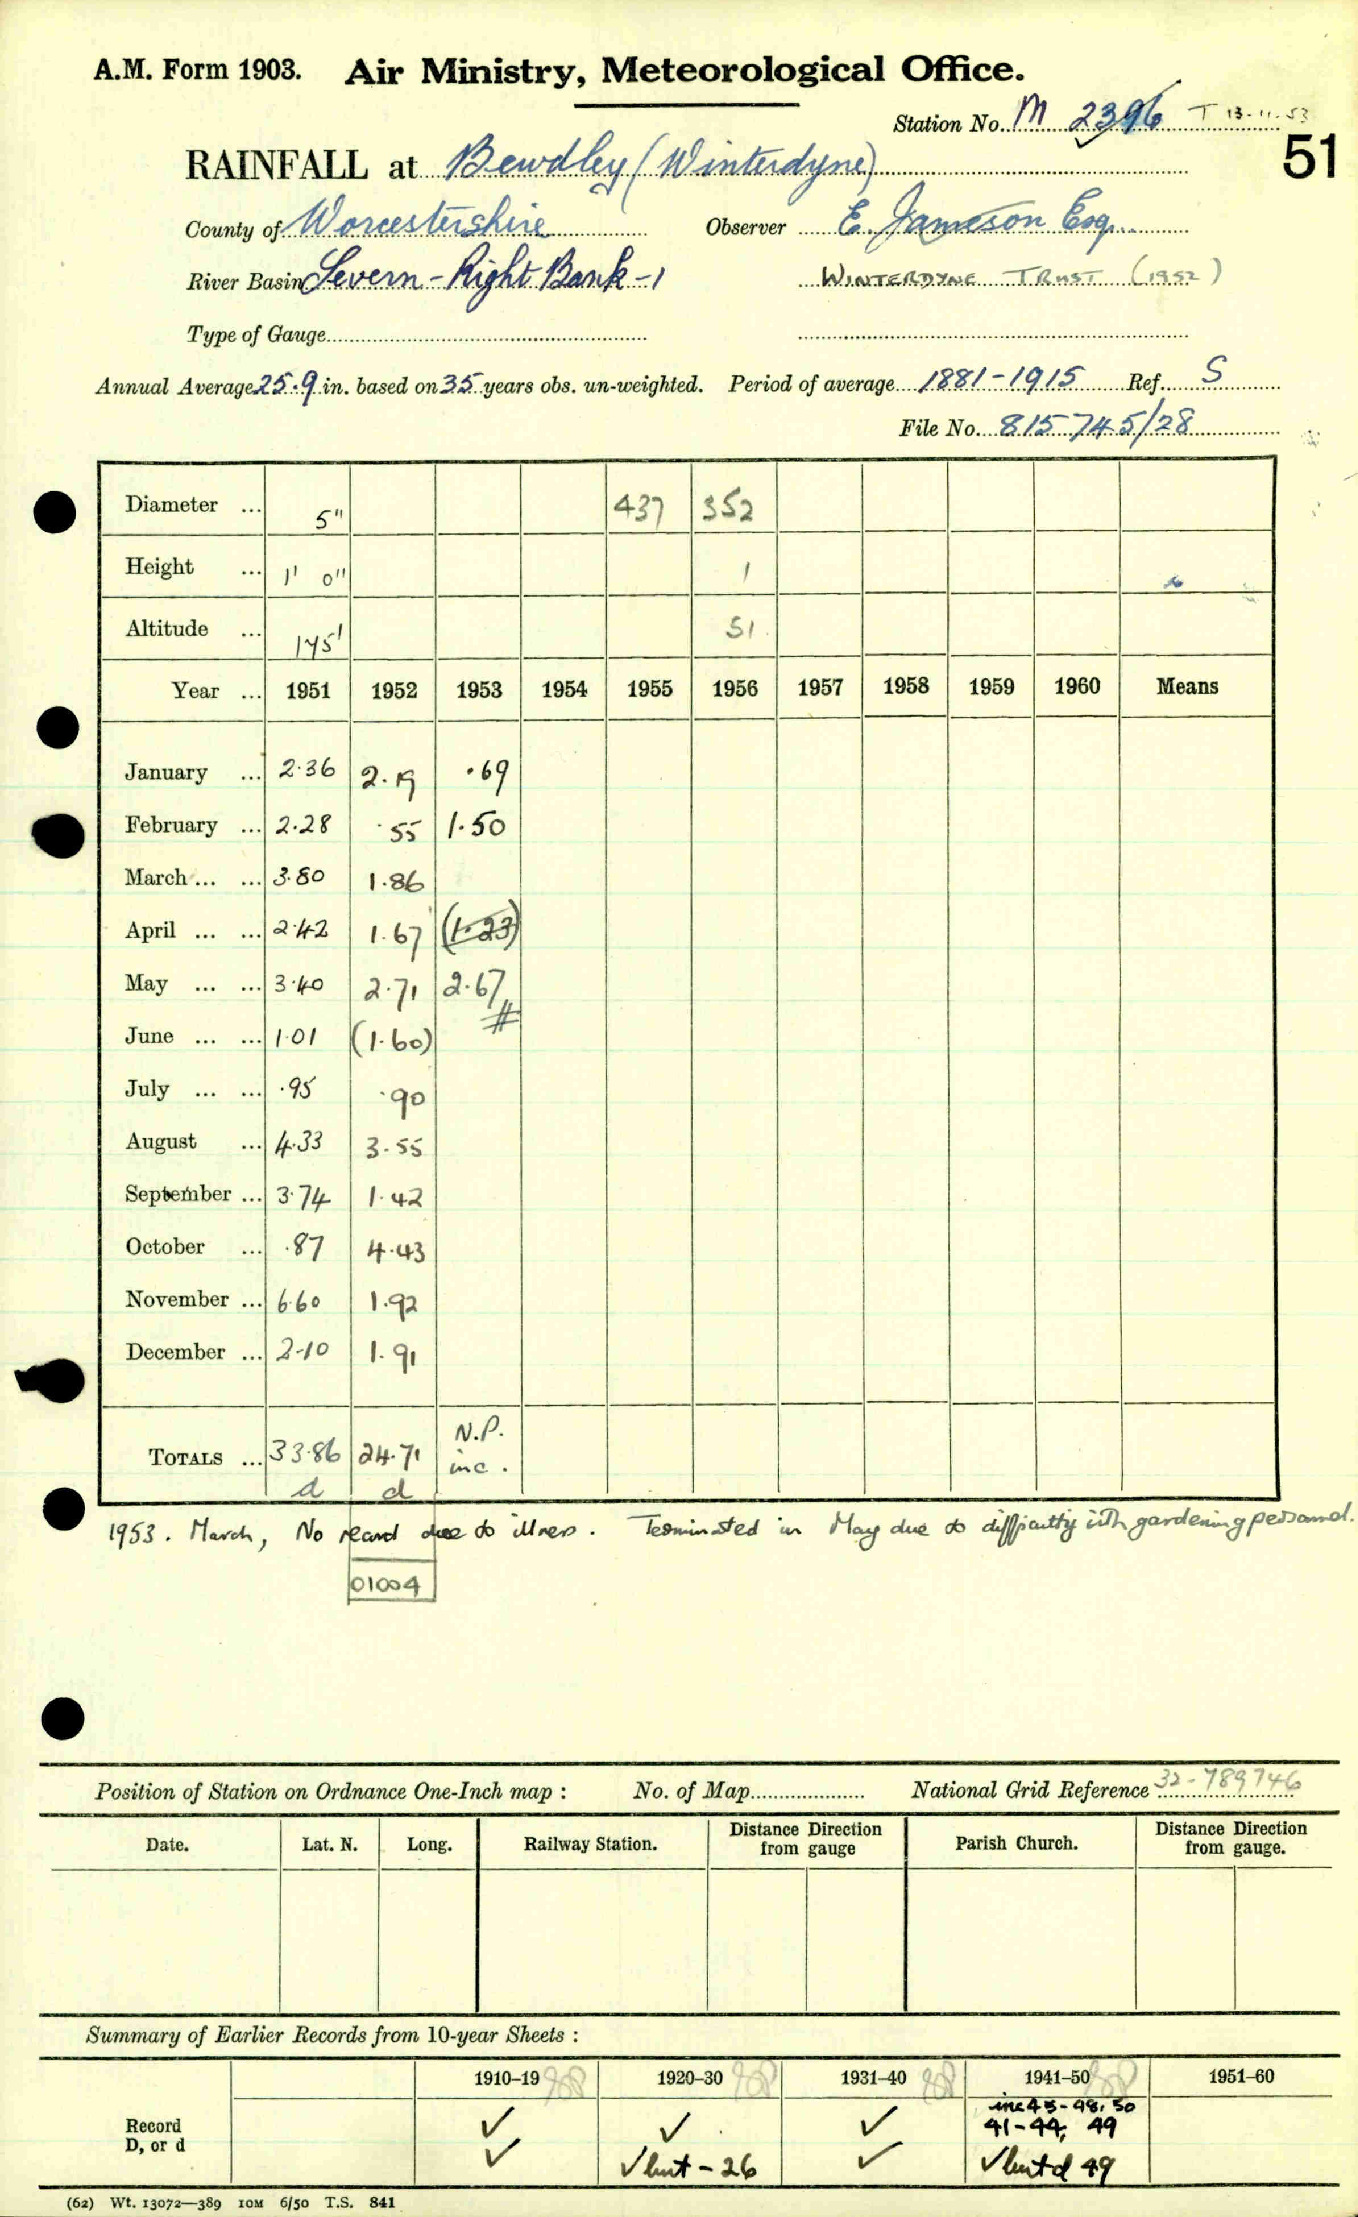 A.M. Form 1903. Air Ministry, Meteorological Office.
Station No. M 2396 T 13-11-53
51
RAINFALL at Bewdley (Winterdyne)
County of Worcestershire Observer E. Jameson Esq.
River Basin Severn - Right Bank - 1 WINTERDYNE TRUST (1952)
Type of Gauge
Annual Average 25.9 in. based on 35 years obs. un-weighted. Period of average 1881-1915 Ref. S
File No. 815745/28
Diameter ... 5" 437 352
Height ... 1' 0" 1
Altitude ... 175' 51
Year ... 1951 1952 1953 1954 1955 1956 1957 1958 1959 1960 Means
January ... 2.36 2.19 .69
February ... 2.28 .55 1.50
March ... ... 3.80 1.86
April ... ... 2.42 1.67 (1.23)
May ... ... 3.40 2.71 2.67
#
June ... ... 1.01 (1.60)
July ... ... .95 .90
August ... 4.33 3.55
September ... 3.74 1.42
October ... .87 4.43
November ... 6.60 1.92
December ... 2.10 1.91
TOTALS ... 33.86 24.71 N.P. inc.
d d
1953. March, No record due to illness. Terminated in May due to difficulty with gardening personnel.
01004
Position of Station on Ordnance One-Inch map : No. of Map National Grid Reference 32-789746
Date. Lat. N. Long. Railway Station. Distance from gauge Direction Parish Church. Distance from gauge. Direction
Summary of Earlier Records from 10-year Sheets :
1910-19 1920-30 1931-40 1941-50 1951-60
inc 45-48, 50
Record ✓ ✓ ✓ 41-44, 49
D, or d ✓ ✓ but - 26 ✓ ✓ but d 49
(62) Wt. 13072—389 10M 6/50 T.S. 841